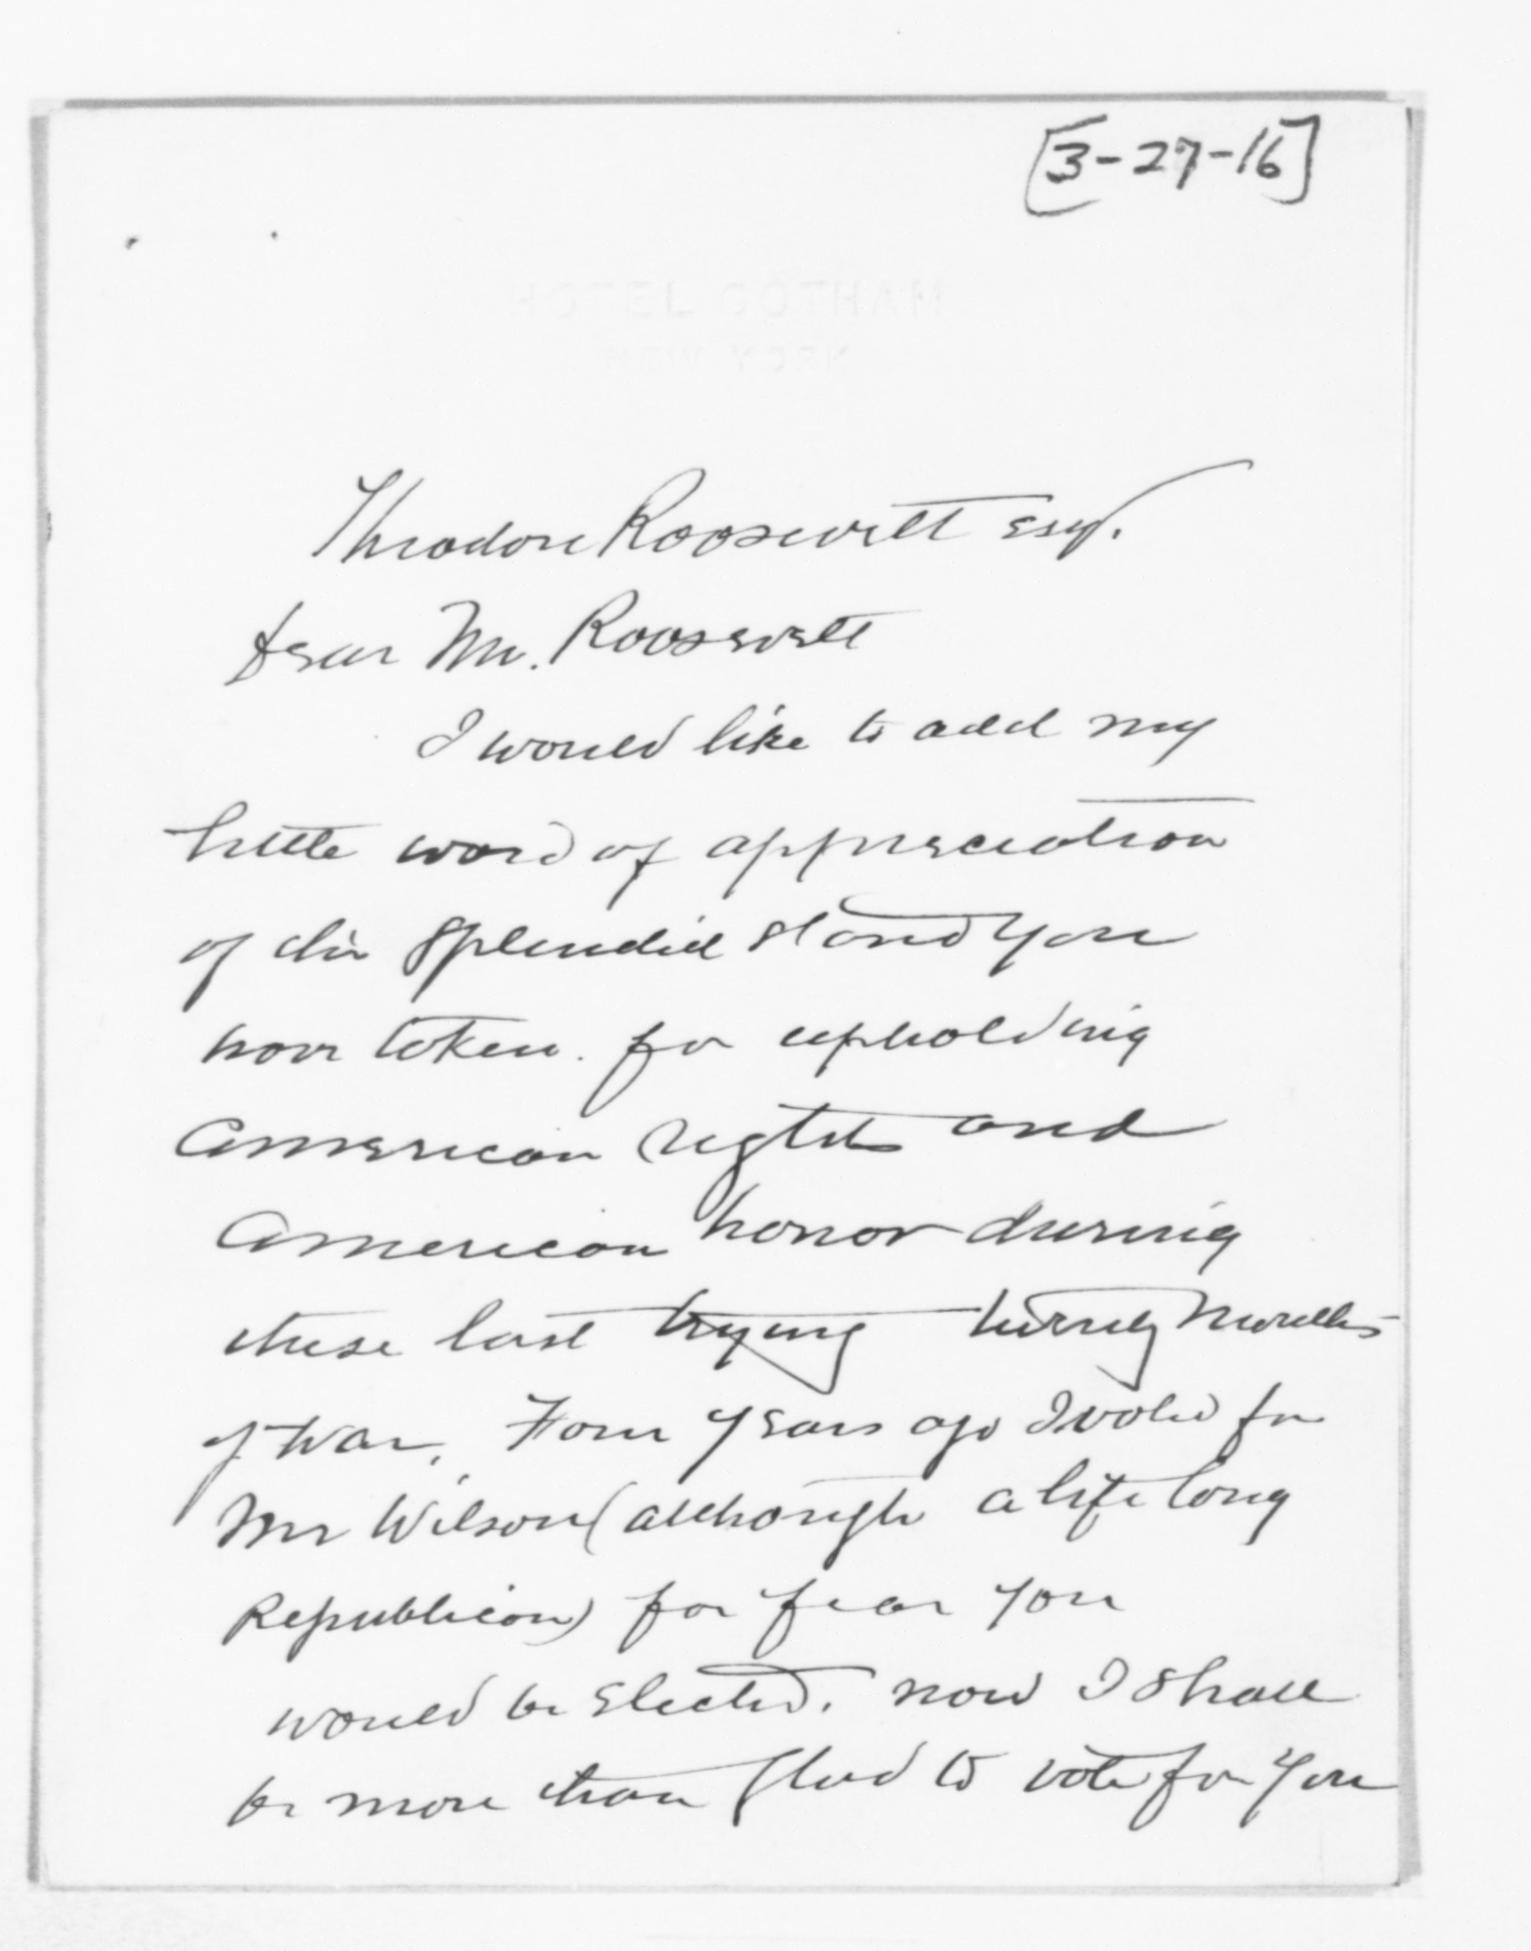 [3-27-16]
HOTEL GOTHAM
NEW YORK
Theodore Roosevelt Esq.
Dear Mr. Roosevelt
I would like to add my
little word of appreciation
of the splendid stand you
have taken. for upholding
American rights and
American honor during
these last trying twenty months
of war. Four years ago I voted for
Mr Wilson (although a life long
Republican) for fear you
would be elected. now I shall
be more than glad to vote for you